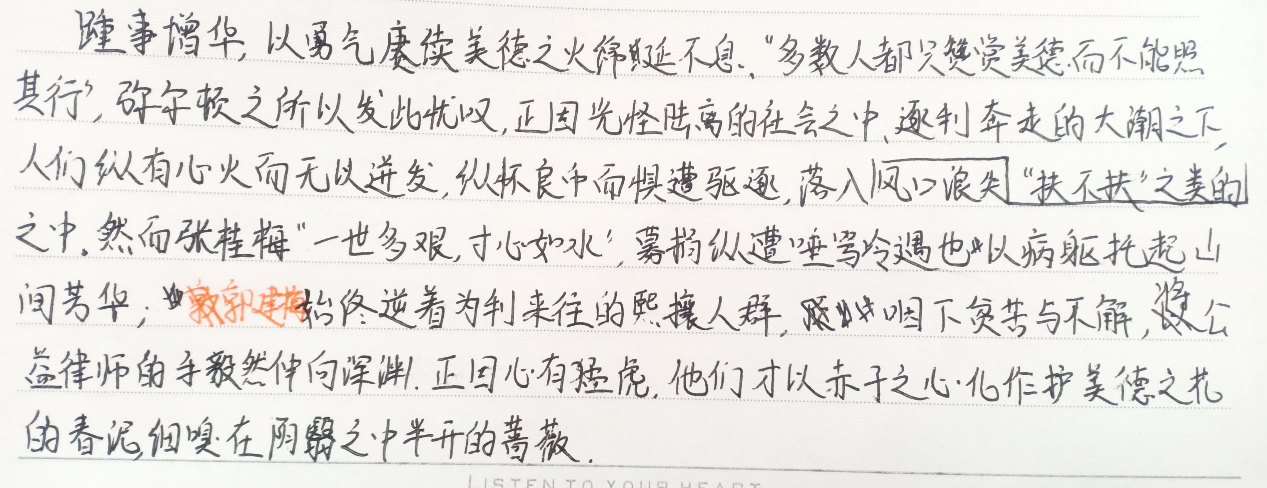 踵事增华,以勇气赓续美德之火绵延不息。“多数人都只赞赏美德而不能照
其行”,弥尔顿之所以发此忧叹,正因光怪陆离的社会之中,逐利奔走的大潮之下,
人们纵有心火而无以迸发,纵怀良中而惧遭驱逐,落入风口浪尖“扶不扶”之类的
之中。然而张桂梅“一世多艰,寸心如水”,募捐纵遭唾骂冷遇也以病躯托起山
间芳华;郭建梅始终逆着为利来往的熙攘人群,咽下贫苦与不解,将公
益律师的手毅然伸向深渊。正因心有猛虎,他们才以赤子之心化作护美德之花
的春泥,细嗅在阴翳之中半开的蔷薇.
LISTEN TO YOUR HEART